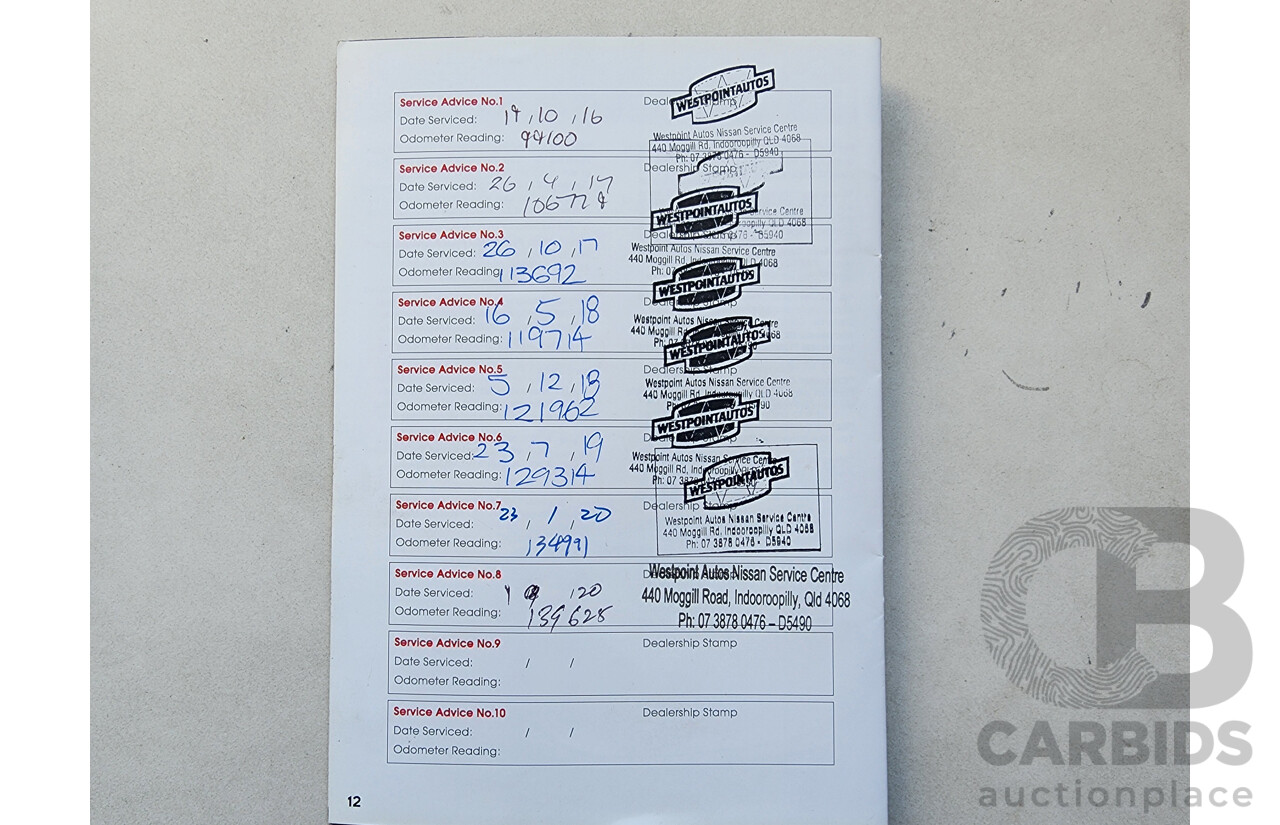 Service Advice No.1 Dealership Stamp
Date Serviced: 19 / 10 / 16
Odometer Reading: 99100
WESTPOINTAUTOS
Westpoint Autos Nissan Service Centre
440 Moggill Rd, Indooroopilly QLD 4068
Ph: 07 3878 0476 - D5940
Service Advice No.2 Dealership Stamp
Date Serviced: 26 / 4 / 17
Odometer Reading:
WESTPOINTAUTOS
Service Centre
QLD 4068
0476 - D5940
Service Advice No.3
Date Serviced: 26 / 10 / 17
Odometer Reading: 113692
Westpoint Autos Nissan Service Centre
440 Moggill Rd, 4068
Ph: 07
WESTPOINTAUTOS
Service Advice No.4
Date Serviced: 16 / 5 / 18
Odometer Reading: 119714
Westpoint Autos Nissan Service Centre
440 Moggill Rd
Ph: 07
WESTPOINTAUTOS
Service Advice No.5 Dealership Stamp
Date Serviced: 5 / 12 / 18
Odometer Reading: 121962
Westpoint Autos Nissan Service Centre
440 Moggill Rd, Indooroopilly QLD 4068
WESTPOINTAUTOS
Service Advice No.6
Date Serviced: 23 / 7 / 19
Odometer Reading: 129314
Westpoint Autos Nissan Service Centre
440 Moggill Rd, Indooroopilly
Ph: 07
WESTPOINTAUTOS
Service Advice No.7 Dealership Stamp
Date Serviced: 23 / 1 / 20
Odometer Reading: 134991
Westpoint Autos Nissan Service Centre
440 Moggill Rd, Indooroopilly QLD 4068
Ph: 07 3878 0476 - D5940
Service Advice No.8
Date Serviced: / 20
Odometer Reading: 139625
Westpoint Autos Nissan Service Centre
440 Moggill Road, Indooroopilly, Qld 4068
Ph: 07 3878 0476 – D5490
Service Advice No.9 Dealership Stamp
Date Serviced: / /
Odometer Reading:
Service Advice No.10 Dealership Stamp
Date Serviced: / /
Odometer Reading:
12
CB
CARBIDS
auctionplace